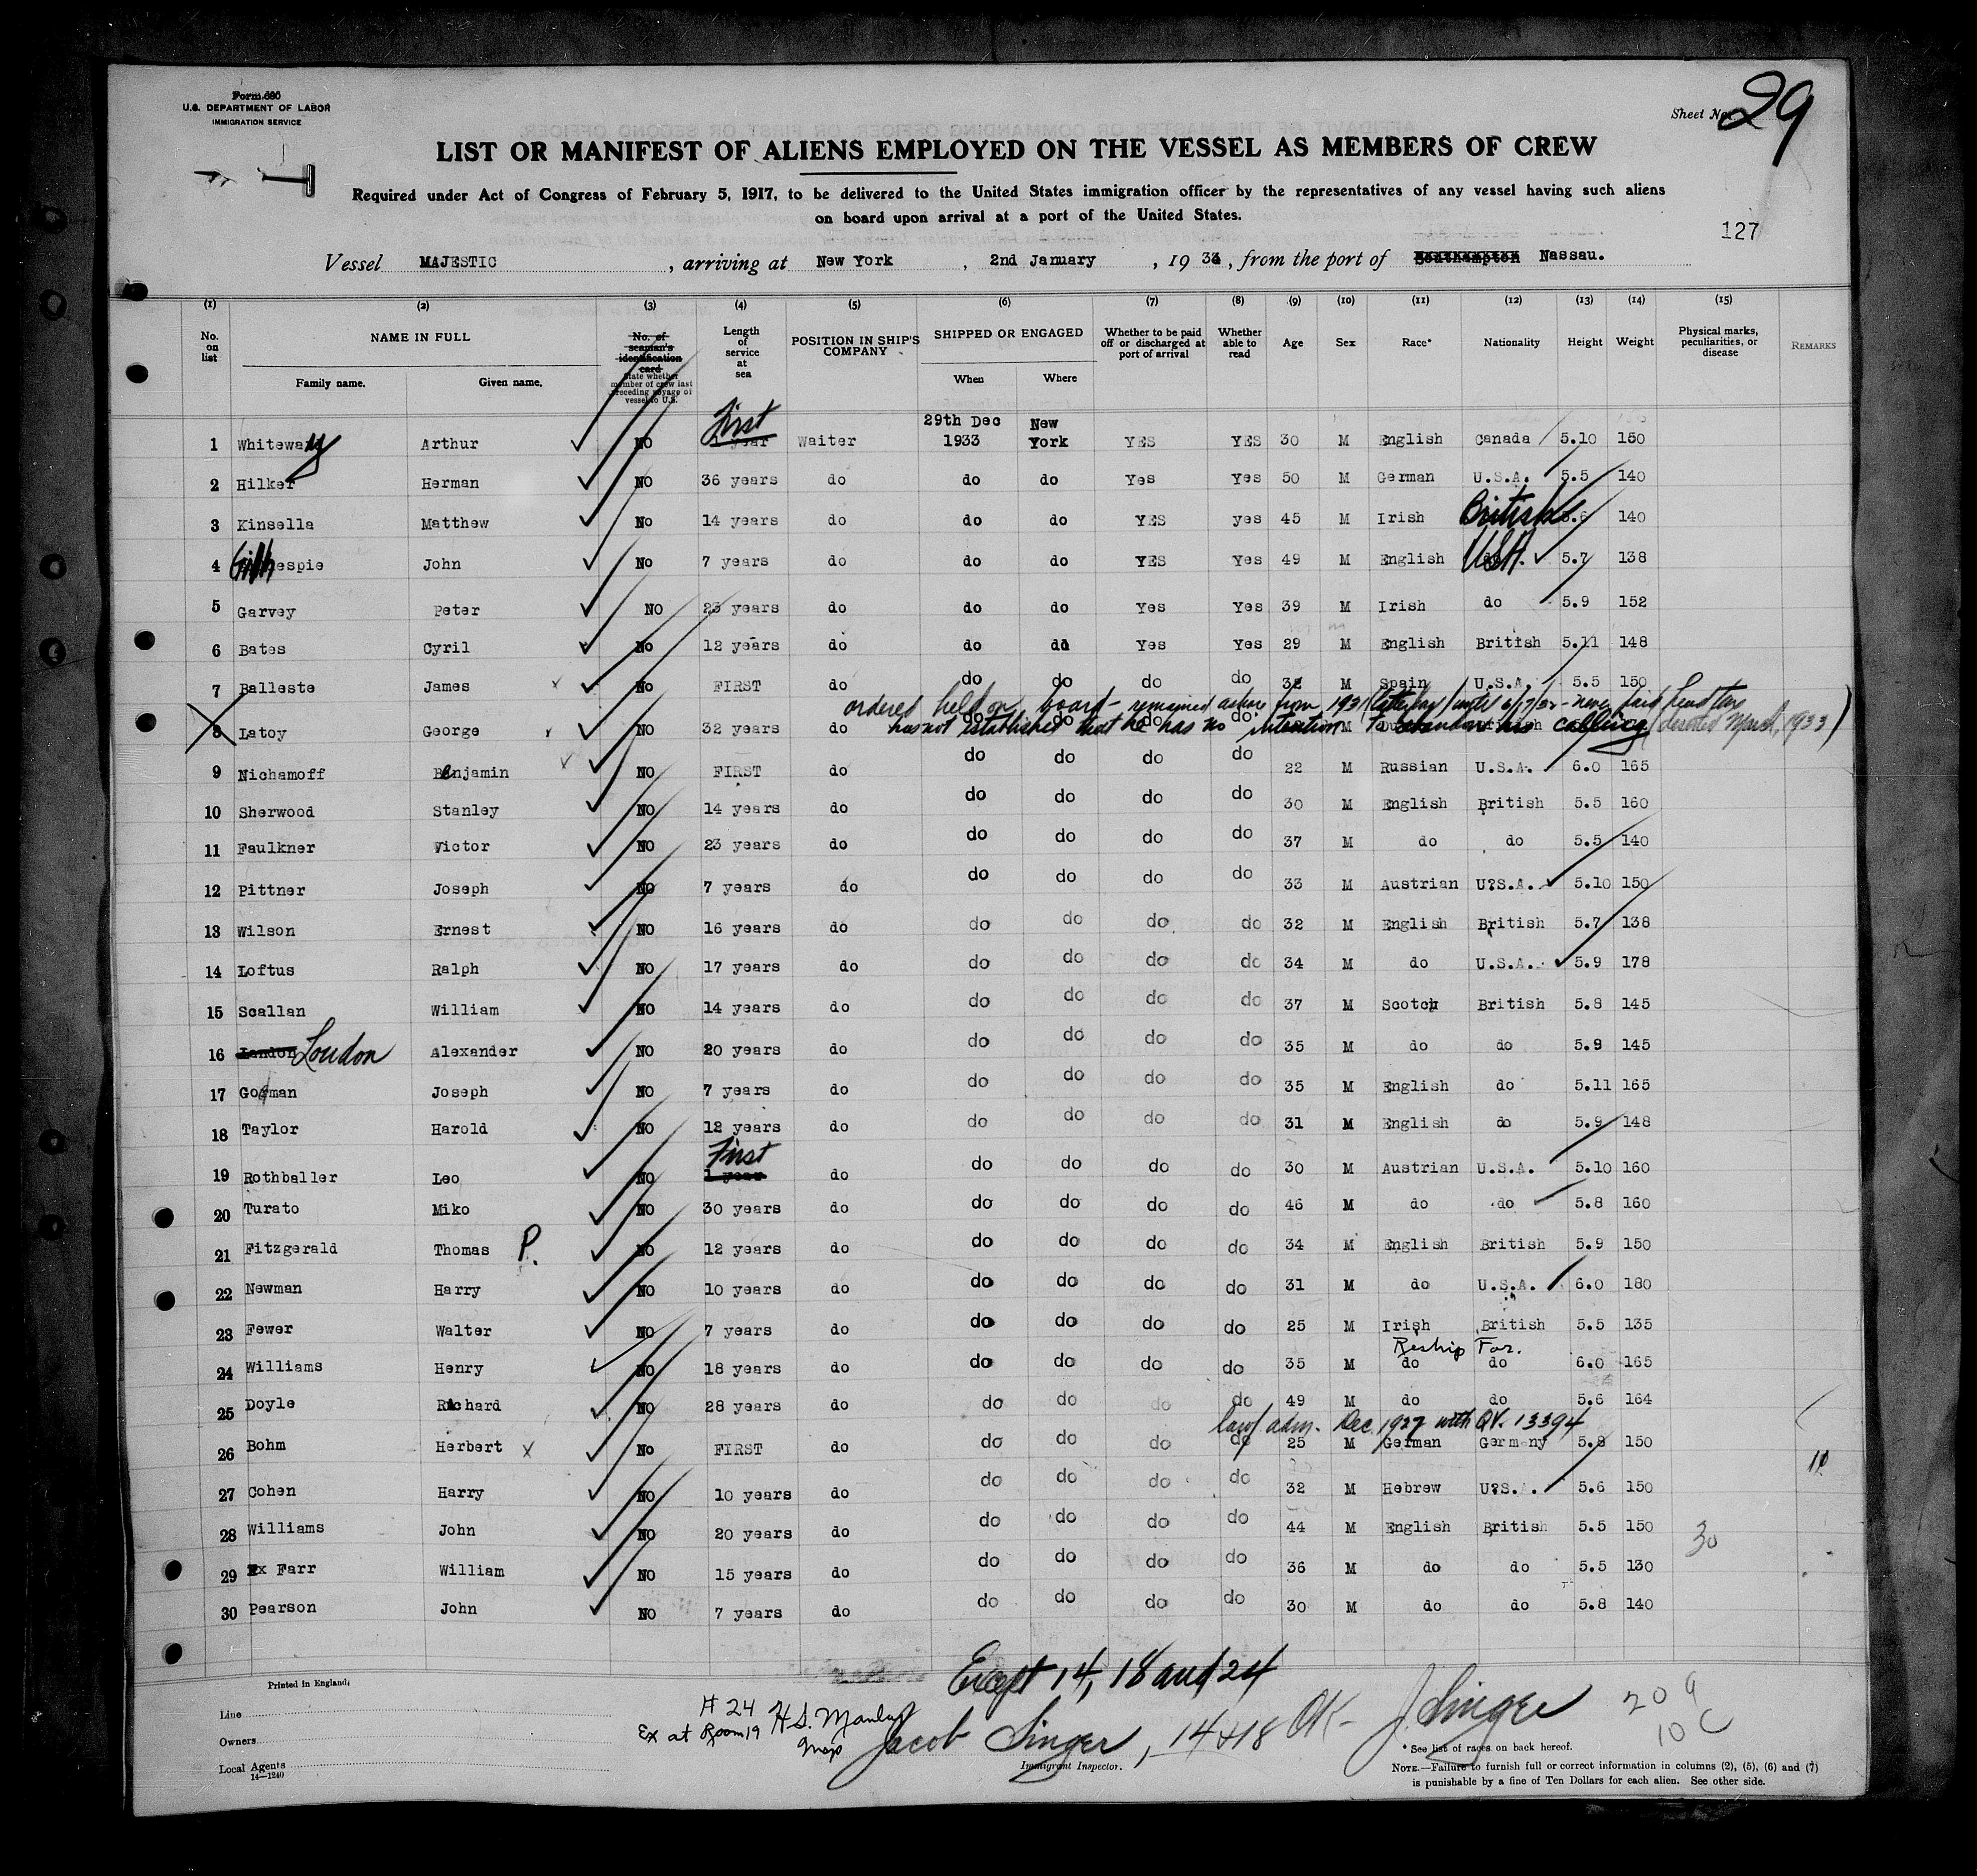 Form 680
U.S. DEPARTMENT OF LABOR
IMMIGRATION SERVICE
Sheet No. 29
LIST OR MANIFEST OF ALIENS EMPLOYED ON THE VESSEL AS MEMBERS OF CREW
Required under Act of Congress of February 5, 1917, to be delivered to the United States immigration officer by the representatives of any vessel having such aliens
on board upon arrival at a port of the United States.
127
Vessel MAJESTIC, arriving at New York, 2nd January, 1934, from the port of Southampton Nassau.
(1) (2) (3) (4) (5) (6) (7) (8) (9) (10) (11) (12) (13) (14) (15)
No. on list NAME IN FULL Family name. Given name. No. of seaman's identification card State whether member of crew last preceding voyage of vessel to U.S. Length of service at sea POSITION IN SHIP'S COMPANY SHIPPED OR ENGAGED When Where Whether to be paid off or discharged at port of arrival Whether able to read Age Sex Race* Nationality Height Weight Physical marks, peculiarities, or disease REMARKS
1 Whiteway Arthur NO First year Waiter 29th Dec 1933 New York YES YES 30 M English Canada 5.10 150
2 Hilker Herman NO 36 years do do do Yes Yes 50 M German U.S.A. 5.5 140
3 Kinsella Matthew No 14 years do do do YES yes 45 M Irish British 5.6 140
4 Gillespie John No 7 years do do do YES Yes 49 M English USA. 5.7 138
5 Garvey Peter NO 23 years do do do Yes Yes 39 M Irish do 5.9 152
6 Bates Cyril No 12 years do do do Yes Yes 29 M English British 5.11 148
7 Balleste James No FIRST do do do do do 32 M Spain U.S.A. 5.5 150
ordered held on board - remained ashore from 1931 until 6/17/32 - never paid head tax
8 Latoy George NO 32 years do do do do do M British
has not established that he has no intention to abandon his calling (deserted March, 1933)
9 Nichamoff Benjamin NO FIRST do do do do do 22 M Russian U.S.A. 6.0 165
10 Sherwood Stanley NO 14 years do do do do do 30 M English British 5.5 160
11 Faulkner Victor NO 23 years do do do do do 37 M do do 5.5 140
12 Pittner Joseph NO 7 years do do do do do 33 M Austrian U?S.A. 5.10 150
13 Wilson Ernest NO 16 years do do do do do 32 M English British 5.7 138
14 Loftus Ralph NO 17 years do do do do do 34 M do U.S.A. 5.9 178
15 Scallan William NO 14 years do do do do do 37 M Scotch British 5.8 145
16 Landon London Alexander NO 20 years do do do do do 35 M do do 5.9 145
17 Goman Joseph NO 7 years do do do do do 35 M English do 5.11 165
18 Taylor Harold NO 12 years do do do do do 31 M English do 5.9 148
19 Rothballer Leo NO First 1 year do do do do do 30 M Austrian U.S.A. 5.10 160
20 Turato Miko NO 30 years do do do do do 46 M do do 5.8 160
21 Fitzgerald Thomas P. NO 12 years do do do do do 34 M English British 5.9 150
22 Newman Harry NO 10 years do do do do do 31 M do U.S.A. 6.0 180
23 Fewer Walter NO 7 years do do do do do 25 M Irish British 5.5 135
Reship For.
24 Williams Henry NO 18 years do do do do do 35 M do do 6.0 165
25 Doyle Richard NO 28 years do do do do do 49 M do do 5.6 164
law/ adm. Dec 1927 with QV. 13394
26 Bohm Herbert X No FIRST do do do do do 25 M German Germany 5.8 150
27 Cohen Harry NO 10 years do do do do do 32 M Hebrew U?S.A. 5.6 150
28 Williams John NO 20 years do do do do do 44 M English British 5.5 150
30
29 Ex Farr William NO 15 years do do do do do 36 M do do 5.5 130
30 Pearson John NO 7 years do do do do do 30 M do do 5.8 140
Printed in England.
Except 14, 18 and 24
Line
Owners
Local Agents
14—1240
# 24 H.S. Manley
Ex at Room 19 Insp
Jacob Singer, 14 + 18 OK - J Singer
Immigrant Inspector.
209
10 C
* See list of races on back hereof.
NOTE.—Failure to furnish full or correct information in columns (2), (5), (6) and (7)
is punishable by a fine of Ten Dollars for each alien. See other side.